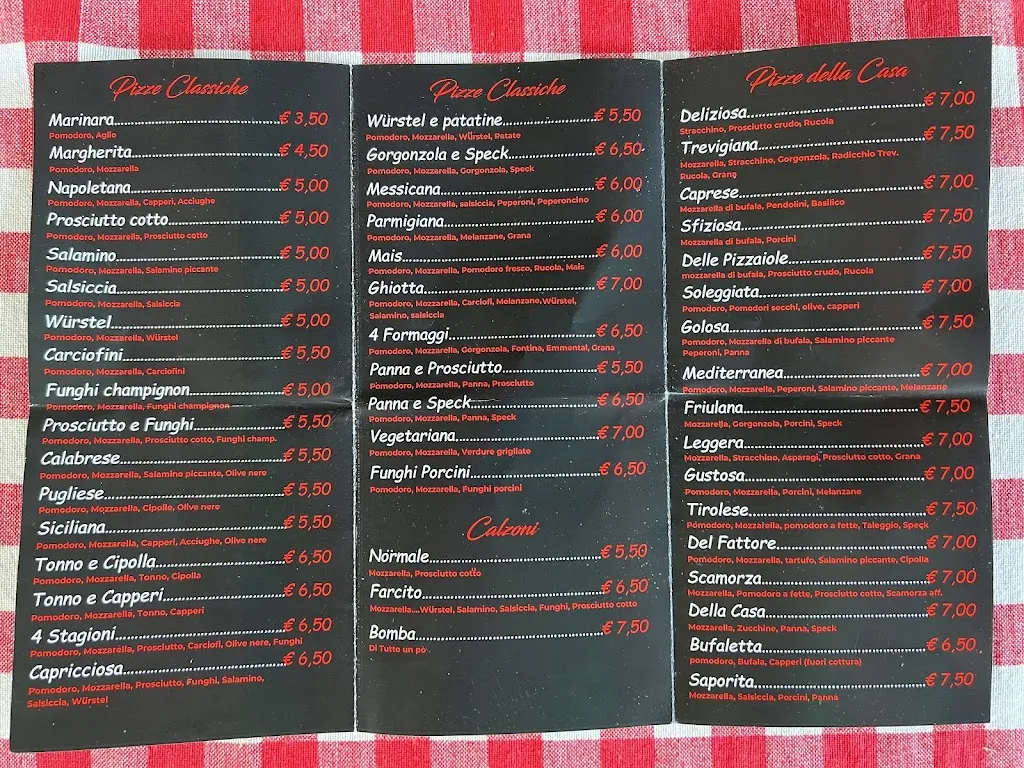 Pizze Classiche
Marinara........€ 3,50
Pomodoro, Aglio
Margherita........€ 4,50
Pomodoro, Mozzarella
Napoletana........€ 5,00
Pomodoro, Mozzarella, Capperi, Acciughe
Prosciutto cotto........€ 5,00
Pomodoro, Mozzarella, Prosciutto cotto
Salamino........€ 5,00
Pomodoro, Mozzarella, Salamino piccante
Salsiccia........€ 5,00
Pomodoro, Mozzarella, Salsiccia
Würstel........€ 5,00
Pomodoro, Mozzarella, Würstel
Carciofini........€ 5,50
Pomodoro, Mozzarella, Carciofini
Funghi champignon........€ 5,00
Pomodoro, Mozzarella, Funghi champignon
Prosciutto e Funghi........€ 5,50
Pomodoro, Mozzarella, Prosciutto cotto, Funghi champ.
Calabrese........€ 5,50
Pomodoro, Mozzarella, Salamino piccante, Olive nere
Pugliese........€ 5,50
Pomodoro, Mozzarella, Cipolle, Olive nere
Siciliana........€ 5,50
Pomodoro, Mozzarella, Capperi, Acciughe, Olive nere
Tonno e Cipolla........€ 6,50
Pomodoro, Mozzarella, Tonno, Cipolla
Tonno e Capperi........€ 6,50
Pomodoro, Mozzarella, Tonno, Capperi
4 Stagioni........€ 6,50
Pomodoro, Mozzarella, Prosciutto, Carciofi, Olive nere, Funghi
Capricciosa........€ 6,50
Pomodoro, Mozzarella, Prosciutto, Funghi, Salamino,
Salsiccia, Würstel
Pizze Classiche
Würstel e patatine........€ 5,50
Pomodoro, Mozzarella, Würstel, Patate
Gorgonzola e Speck........€ 6,50
Pomodoro, Mozzarella, Gorgonzola, Speck
Messicana........€ 6,00
Pomodoro, Mozzarella, salsiccia, Peperoni, Peperoncino
Parmigiana........€ 6,00
Pomodoro, Mozzarella, Melanzane, Grana
Mais........€ 6,00
Pomodoro, Mozzarella, Pomodoro fresco, Rucola, Mais
Ghiotta........€ 7,00
Pomodoro, Mozzarella, Carciofi, Melanzane,Würstel,
Salamino, salsiccia
4 Formaggi........€ 6,50
Pomodoro, Mozzarella, Gorgonzola, Fontina, Emmental, Grana
Panna e Prosciutto........€ 5,50
Pomodoro, Mozzarella, Panna, Prosciutto
Panna e Speck........€ 6,50
Pomodoro, Mozzarella, Panna, Speck
Vegetariana........€ 7,00
Pomodoro, Mozzarella, Verdure grigliate
Funghi Porcini........€ 6,50
Pomodoro, Mozzarella, Funghi porcini
Calzoni
Normale........€ 5,50
Mozzarella, Prosciutto cotto
Farcito........€ 6,50
Mozzarella....Würstel, Salamino, Salsiccia, Funghi, Prosciutto cotto
Bomba........€ 7,50
Di Tutte un pò
Pizze della Casa
Deliziosa........€ 7,00
Stracchino, Prosciutto crudo, Rucola
Trevigiana........€ 7,50
Mozzarella, Stracchino, Gorgonzola, Radicchio Trev.
Rucola, Grana
Caprese........€ 7,00
Mozzarella di bufala, Pendolini, Basilico
Sfiziosa........€ 7,50
Mozzarella di bufala, Porcini
Delle Pizzaiole........€ 7,50
mozzarella di bufala, Prosciutto crudo, Rucola
Soleggiata........€ 7,00
Pomodoro, Pomodori secchi, olive, capperi
Golosa........€ 7,50
Pomodoro, Mozzarella di bufala, Salamino piccante
Peperoni, Panna
Mediterranea........€ 7,00
Pomodoro, Mozzarella, Peperoni, Salamino piccante, Melanzane
Friulana........€ 7,50
Mozzarella, Gorgonzola, Porcini, Speck
Leggera........€ 7,00
Mozzarella, Stracchino, Asparagi, Prosciutto cotto, Grana
Gustosa........€ 7,00
Pomodoro, Mozzarella, Porcini, Melanzane
Tirolese........€ 7,50
Pomodoro, Mozzarella, pomodoro a fette, Taleggio, Speck
Del Fattore........€ 7,00
Pomodoro, Mozzarella, tartufo, Salamino piccante, Cipolla
Scamorza........€ 7,00
Mozzarella, Pomodoro a fette, Prosciutto cotto, Scamorza aff.
Della Casa........€ 7,00
Mozzarella, Zucchine, Panna, Speck
Bufaletta........€ 6,50
pomodoro, Bufala, Capperi (fuori cottura)
Saporita........€ 7,50
Mozzarella, Salsiccia, Porcini, Panna